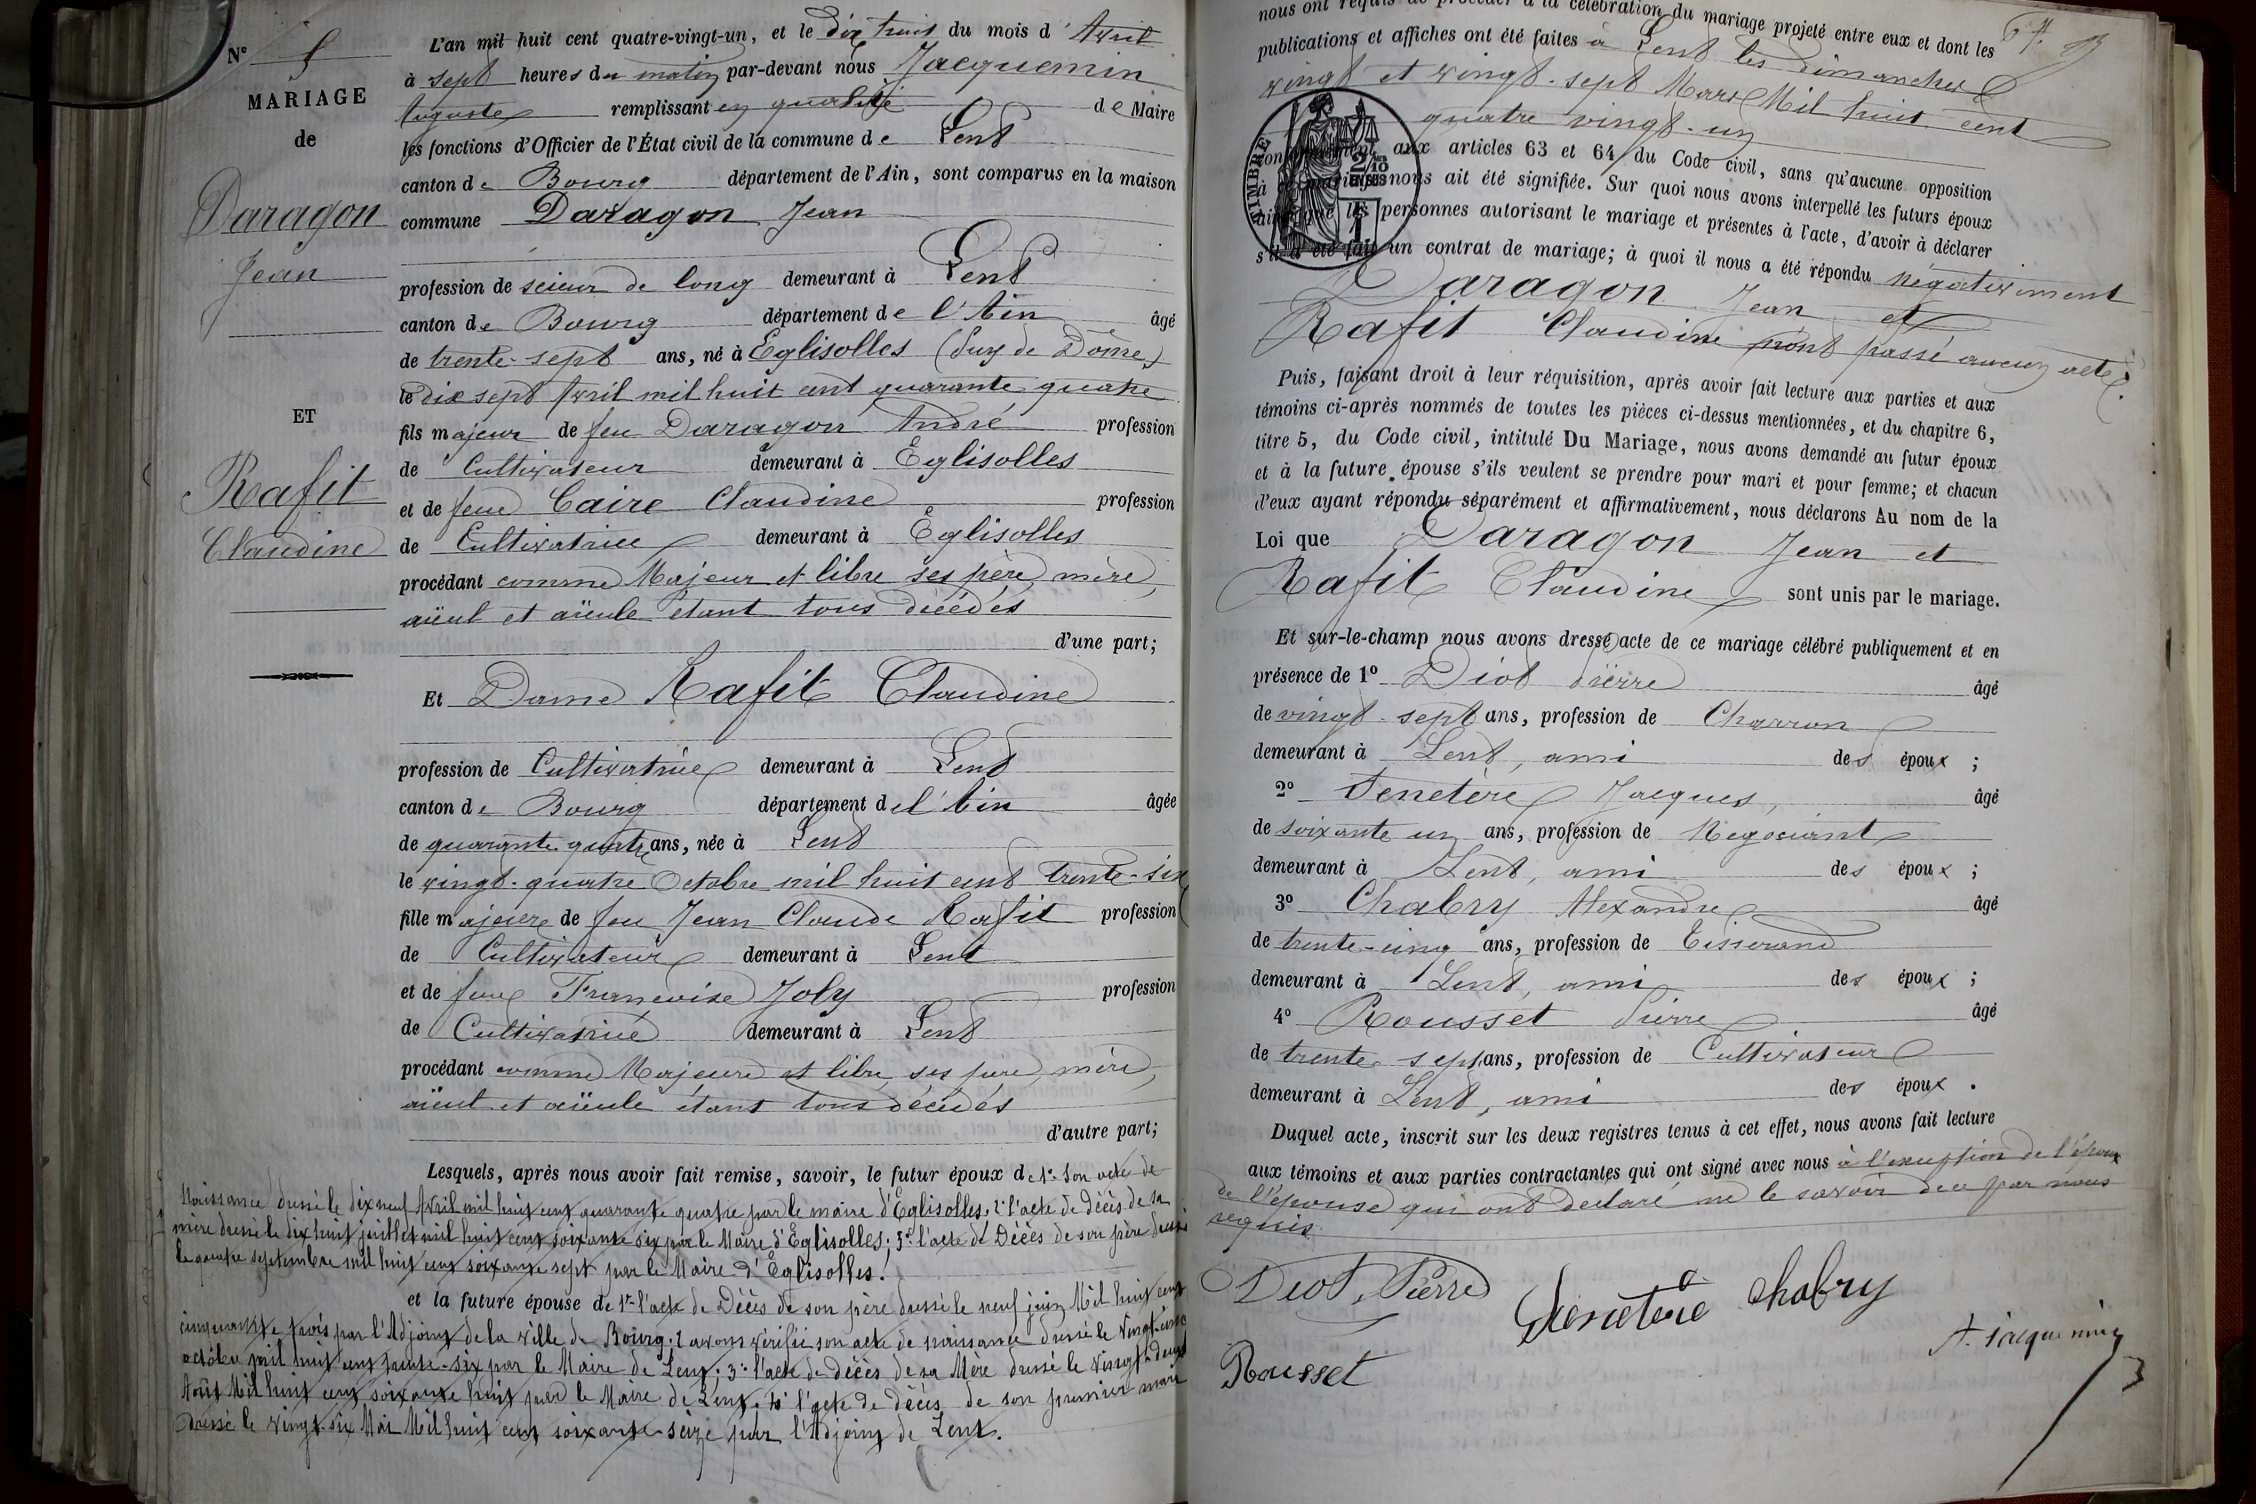 N° 5
MARIAGE
de
Daragon
Jean
ET
Rafit
Claudine
L'an mil huit cent quatre-vingt-un, et le dix huit du mois d'Avril
à sept heures du matin par-devant nous Jacquemin
Auguste remplissant en qualité de Maire
les fonctions d'Officier de l'État civil de la commune de Lent
canton de Bourg département de l'Ain, sont comparus en la maison
commune Daragon Jean
profession de scieur de long demeurant à Lent
canton de Bourg département de l'Ain âgé
de trente-sept ans, né à Eglisolles (Puy de Dôme)
le dix sept Avril mil huit cent quarante quatre
fils majeur de feu Daragon André profession
de Cultivateur demeurant à Eglisolles
et de feue Caire Claudine profession
de Cultivatrice demeurant à Eglisolles
procédant comme Majeur et libre ses père, mère,
aïeul et aïeule étant tous décédés
d'une part;
Et Dame Rafit Claudine
profession de Cultivatrice demeurant à Lent
canton de Bourg département de l'Ain âgée
de quarante-quatre ans, née à Lent
le vingt-quatre Octobre mil huit cent trente-six
fille majeure de feu Jean Claude Rafit profession
de Cultivateur demeurant à Lent
et de feue Françoise Joly profession
de Cultivatrice demeurant à Lent
procédant comme Majeure et libre, ses père, mère,
aïeul et aïeule étant tous décédés
d'autre part;
Lesquels, après nous avoir fait remise, savoir, le futur époux de 1° son acte de
Naissance dressé le dix neuf Avril mil huit cent quarante quatre par le maire d'Eglisolles; 2° l'acte de décès de sa
mère dressé le dix huit juillet mil huit cent soixante six par le Maire d'Eglisolles; 3° l'acte de Décès de son père dressé
le quatre septembre mil huit cent soixante sept par le Maire d'Eglisolles.
et la future épouse de 1° l'acte de Décès de son père dressé le neuf juin Mil huit cent
cinquante trois par l'Adjoint de la ville de Bourg; 2 avons vérifié son acte de naissance dressé le Vingt-cinq
octobre mil huit cent trente-six par le Maire de Lent; 3° l'acte de décès de sa Mère dressé le vingt-deux
Août Mil huit cent soixante huit par le Maire de Lent. 4° l'acte de décès de son premier mari
Dressé le vingt-six Mai Mil huit cent soixante-seize par l'Adjoint de Lent.
nous ont requis de procéder à la célébration du mariage projeté entre eux et dont les
publications et affiches ont été faites à Lent les dimanches
vingt et vingt-sept Mars Mil huit cent
quatre vingt-un
conformément aux articles 63 et 64 du Code civil, sans qu'aucune opposition
à ce mariage nous ait été signifiée. Sur quoi nous avons interpellé les futurs époux
ainsi que les personnes autorisant le mariage et présentes à l'acte, d'avoir à déclarer
s'il a été fait un contrat de mariage; à quoi il nous a été répondu négativement
TIMBRE
Daragon Jean et
Rafit Claudine n'ont passé aucun acte.
Puis, faisant droit à leur réquisition, après avoir fait lecture aux parties et aux
témoins ci-après nommés de toutes les pièces ci-dessus mentionnées, et du chapitre 6,
titre 5, du Code civil, intitulé Du Mariage, nous avons demandé au futur époux
et à la future épouse s'ils veulent se prendre pour mari et pour femme; et chacun
d'eux ayant répondu séparément et affirmativement, nous déclarons Au nom de la
Loi que Daragon Jean et
Rafit Claudine sont unis par le mariage.
Et sur-le-champ nous avons dressé acte de ce mariage célébré publiquement et en
présence de 1° Diot Pierre âgé
de vingt-sept ans, profession de Charron
demeurant à Lent, ami des époux;
2° Senetère Jacques, âgé
de soixante un ans, profession de Negociant
demeurant à Lent, ami des époux;
3° Chabry Alexandre âgé
de trente-cinq ans, profession de Tisserand
demeurant à Lent, ami des époux;
4° Rousset Pierre âgé
de trente-sept ans, profession de Cultivateur
demeurant à Lent, ami des époux.
Duquel acte, inscrit sur les deux registres tenus à cet effet, nous avons fait lecture
aux témoins et aux parties contractantes qui ont signé avec nous à l'exception de l'époux
de l'épouse qui ont déclaré ne le savoir de ce par nous
requis.
Diot, Pierre
Senetère Chabry
A. Jacquemin
Rousset